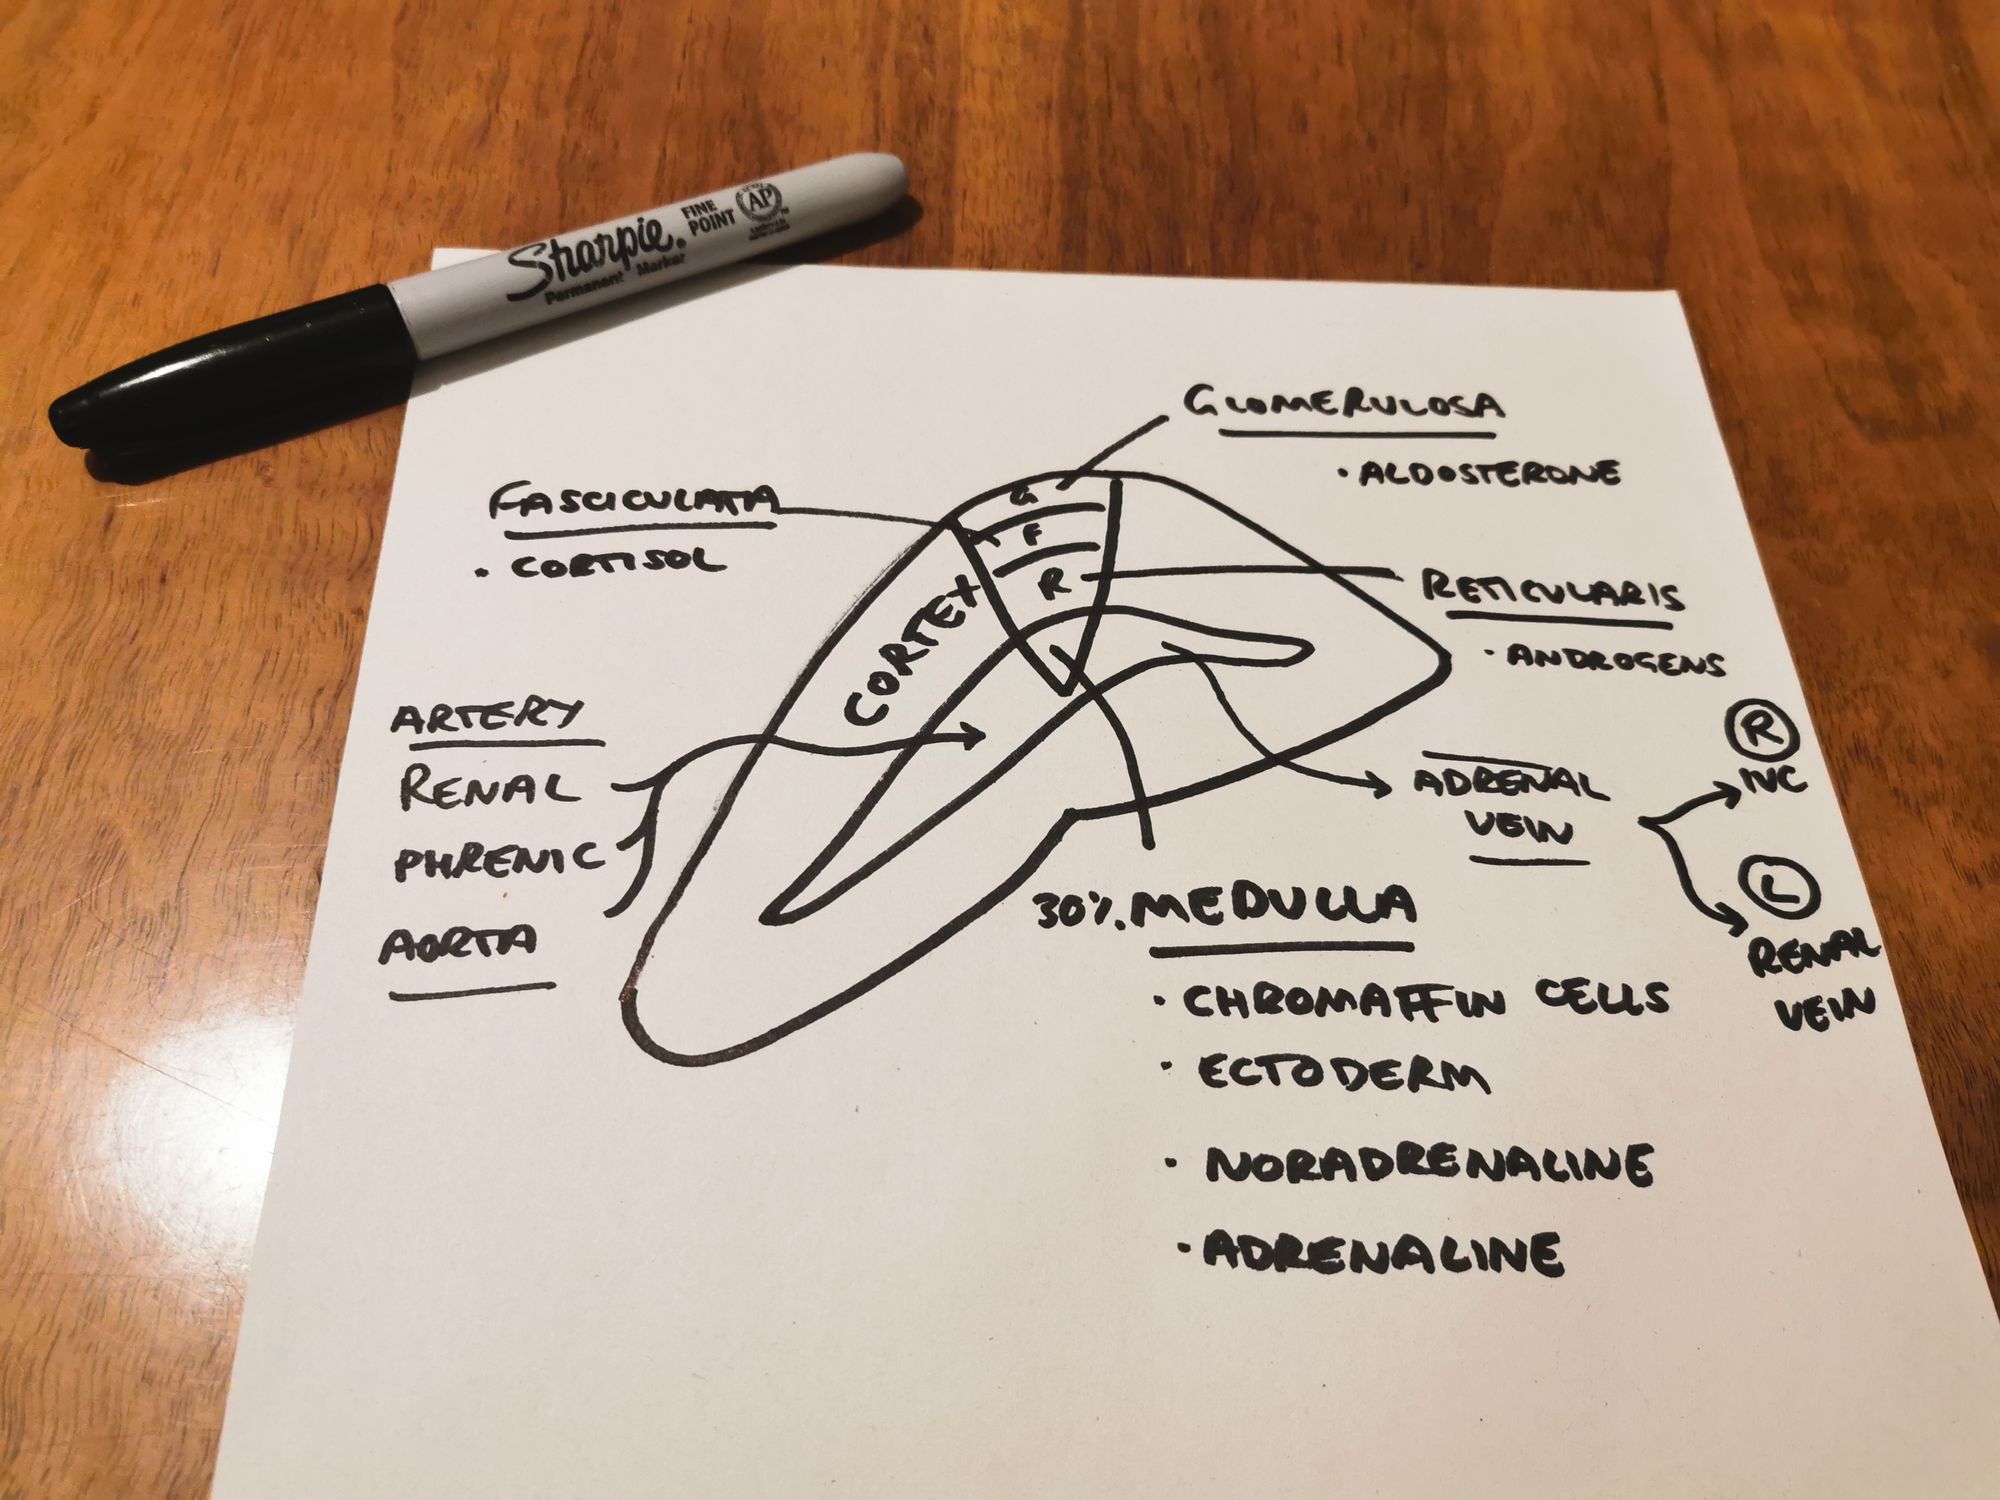 Sharpie.
Permanent Marker
FINE
POINT
AP
GLOMERULOSA
• ALDOSTERONE
FASCICULATA
• CORTISOL
G
F
R
CORTEX
RETICULARIS
• ANDROGENS
ARTERY
RENAL
PHRENIC
AORTA
ADRENAL
VEIN
R
IVC
L
RENAL
VEIN
30% MEDULLA
• CHROMAFFIN CELLS
• ECTODERM
• NORADRENALINE
• ADRENALINE